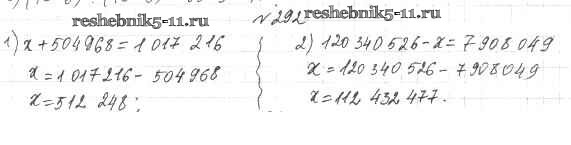 reshebnik5-11.ru № 292 reshebnik5-11.ru
1) x + 504968 = 1 017 216
x = 1 017 216 - 504 968
x = 512 248;
2) 120 340 526 - x = 7 908 049
x = 120 340 526 - 7 908 049
x = 112 432 477.